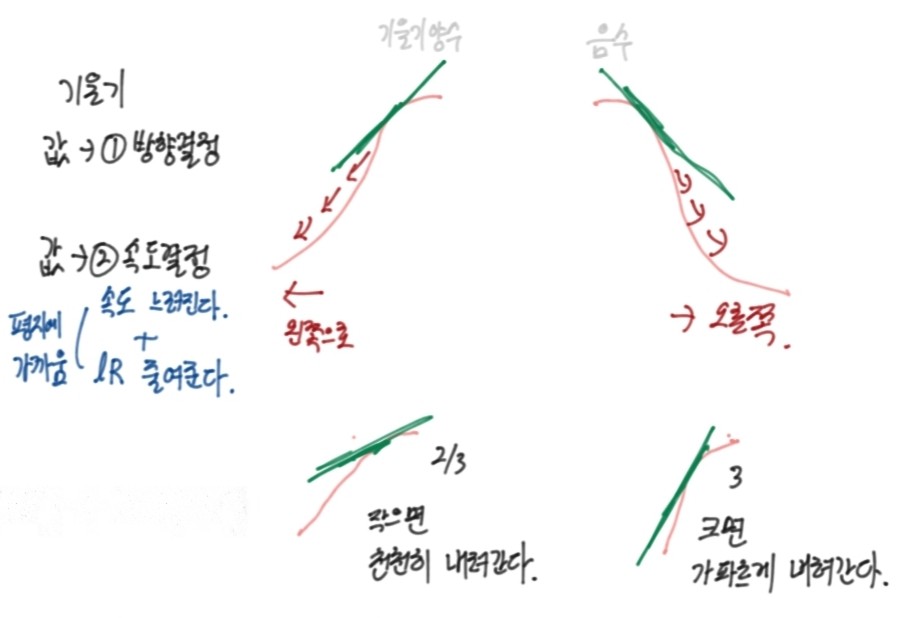 기울기 양수
음수
기울기
값 → ① 방향결정
값 → ② 속도결정
평지에
가까움
속도 느려진다.
+
lR 줄여준다.
← 왼쪽으로
→ 오른쪽.
2/3
작으면
천천히 내려간다.
3
크면
가파르게 내려간다.